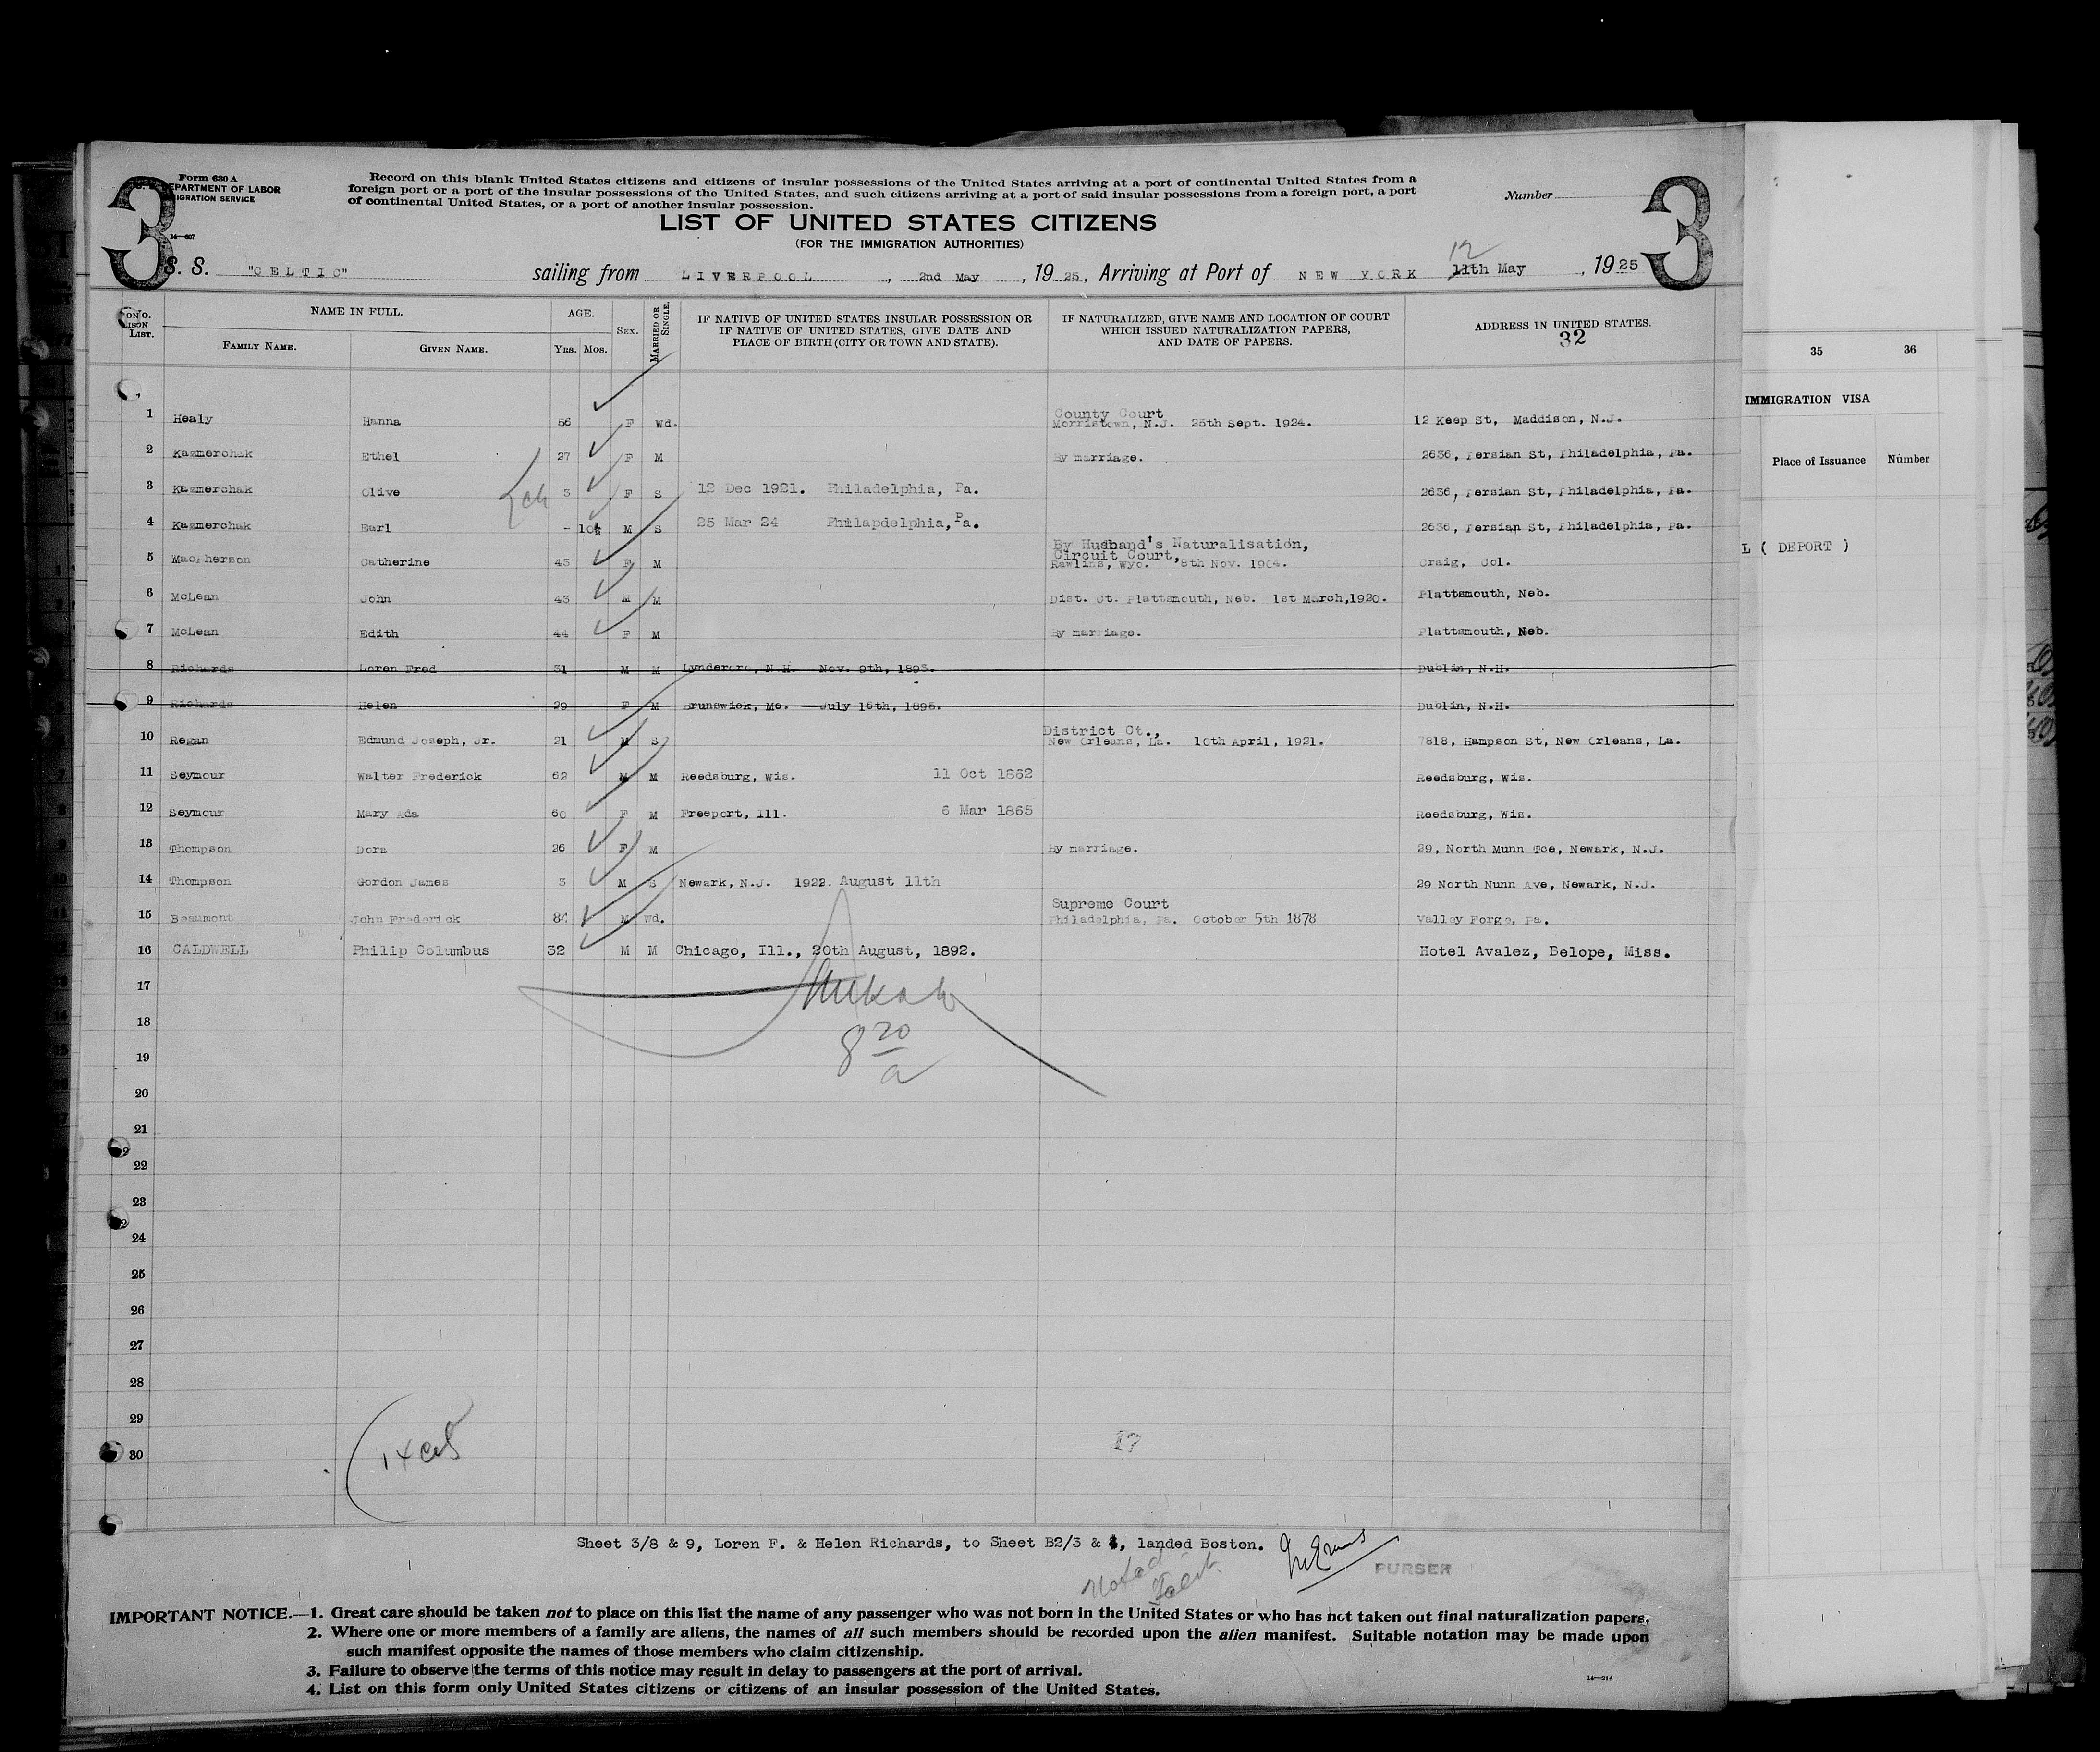 3 Form 630 A 3
DEPARTMENT OF LABOR
IGRATION SERVICE
14—607
Record on this blank United States citizens and citizens of insular possessions of the United States arriving at a port of continental United States from a
foreign port or a port of the insular possessions of the United States, and such citizens arriving at a port of said insular possessions from a foreign port, a port
of continental United States, or a port of another insular possession.
Number
LIST OF UNITED STATES CITIZENS
(FOR THE IMMIGRATION AUTHORITIES)
S. S. "CELTIC" sailing from LIVERPOOL, 2nd May, 1925, Arriving at Port of NEW YORK 11th May, 1925
12
NO. ON
LIST.
NAME IN FULL.
FAMILY NAME. GIVEN NAME.
AGE.
YRS. MOS.
SEX.
MARRIED OR SINGLE.
IF NATIVE OF UNITED STATES INSULAR POSSESSION OR
IF NATIVE OF UNITED STATES, GIVE DATE AND
PLACE OF BIRTH (CITY OR TOWN AND STATE).
IF NATURALIZED, GIVE NAME AND LOCATION OF COURT
WHICH ISSUED NATURALIZATION PAPERS,
AND DATE OF PAPERS.
ADDRESS IN UNITED STATES.
32
1 Healy Hanna 56 F Wd. County Court
Morristown, N.J. 25th Sept. 1924. 12 Keep St, Maddison, N.J.
2 Kazmerchak Ethel 27 F M By marriage. 2636, Persian St, Philadelphia, Pa.
3 Kazmerchak Olive 3 F S 12 Dec 1921. Philadelphia, Pa. 2636, Persian St, Philadelphia, Pa.
2ch
4 Kazmerchak Earl - 10½ M S 25 Mar 24 Philapdelphia, Pa. 2636, Persian St, Philadelphia, Pa.
5 MacPherson Catherine 43 F M By Husband's Naturalisation,
Circuit Court,
Rawlins, Wyo. 8th Nov. 1904. Craig, Col.
6 McLean John 43 M M Dist. Ct. Plattsmouth, Neb. 1st March,1920. Plattsmouth, Neb.
7 McLean Edith 44 F M By marriage. Plattsmouth, Neb.
8 Richards Loren Fred 31 M M Lynderoro, N.H. Nov. 9th, 1893. Dublin, N.H.
9 Richards Helen 29 F M Brunswick, Me. July 16th, 1895. Dublin, N.H.
10 Regan Edmund Joseph, Jr. 21 M S District Ct.,
New Orleans, La. 10th April, 1921. 7818, Hampson St, New Orleans, La.
11 Seymour Walter Frederick 62 M M Reedsburg, Wis. 11 Oct 1862 Reedsburg, Wis.
12 Seymour Mary Ada 60 F M Freeport, Ill. 6 Mar 1865 Reedsburg, Wis.
13 Thompson Dora 26 F M By marriage. 29, North Munn Toe, Newark, N.J.
14 Thompson Gordon James 3 M S Newark, N.J. 1922. August 11th 29 North Nunn Ave, Newark, N.J.
15 Beaumont John Frederick 84 M Wd. Supreme Court
Philadelphia, Pa. October 5th 1878 Valley Forge, Pa.
16 CALDWELL Philip Columbus 32 M M Chicago, Ill., 20th August, 1892. Hotel Avalez, Belope, Miss.
17
18
8 20
a
19
20
21
22
23
24
25
26
27
28
29
30
17
Sheet 3/8 & 9, Loren F. & Helen Richards, to Sheet B2/3 & 4, landed Boston.
PURSER
Noted
IMPORTANT NOTICE.—1. Great care should be taken not to place on this list the name of any passenger who was not born in the United States or who has not taken out final naturalization papers.
2. Where one or more members of a family are aliens, the names of all such members should be recorded upon the alien manifest. Suitable notation may be made upon
such manifest opposite the names of those members who claim citizenship.
3. Failure to observe the terms of this notice may result in delay to passengers at the port of arrival.
4. List on this form only United States citizens or citizens of an insular possession of the United States.
14—216
35 36
IMMIGRATION VISA
Place of Issuance Number
L ( DEPORT )